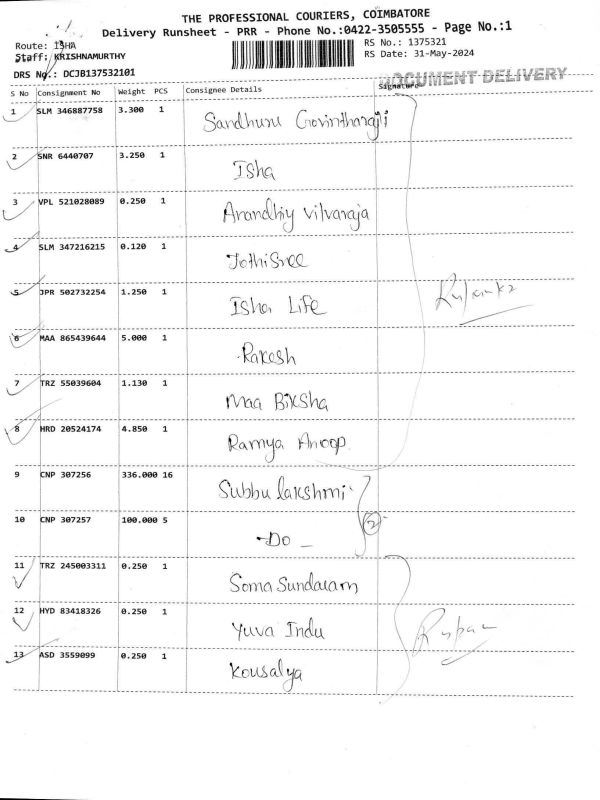 THE PROFESSIONAL COURIERS, COIMBATORE
Delivery Runsheet - PRR - Phone No.:0422-3505555 - Page No.:1
Route: ISHA
RS No.: 1375321
Staff: KRISHNAMURTHY
RS Date: 31-May-2024
DRS No.: DCJB137532101
DOCUMENT DELIVERY
S No Consignment No Weight PCS Consignee Details Signature
1 SLM 346887758 3.300 1 Sandhuru Govintharajji
2 SNR 6440707 3.250 1 Isha
3 VPL 521028089 0.250 1 Anandhiy vilvaraja
4 SLM 347216215 0.120 1 Jothisree
5 JPR 502732254 1.250 1 Isha Life
6 MAA 865439644 5.000 1 Rakesh
7 TRZ 55039604 1.130 1 Maa Biksha
8 HRD 20524174 4.850 1 Ramya Anoop
9 CNP 307256 336.000 16 Subbu lakshmi
10 CNP 307257 100.000 5 -Do- 2
11 TRZ 245003311 0.250 1 Soma Sundaram
12 HYD 83418326 0.250 1 Yuva Indu
13 ASD 3559099 0.250 1 Kousalya